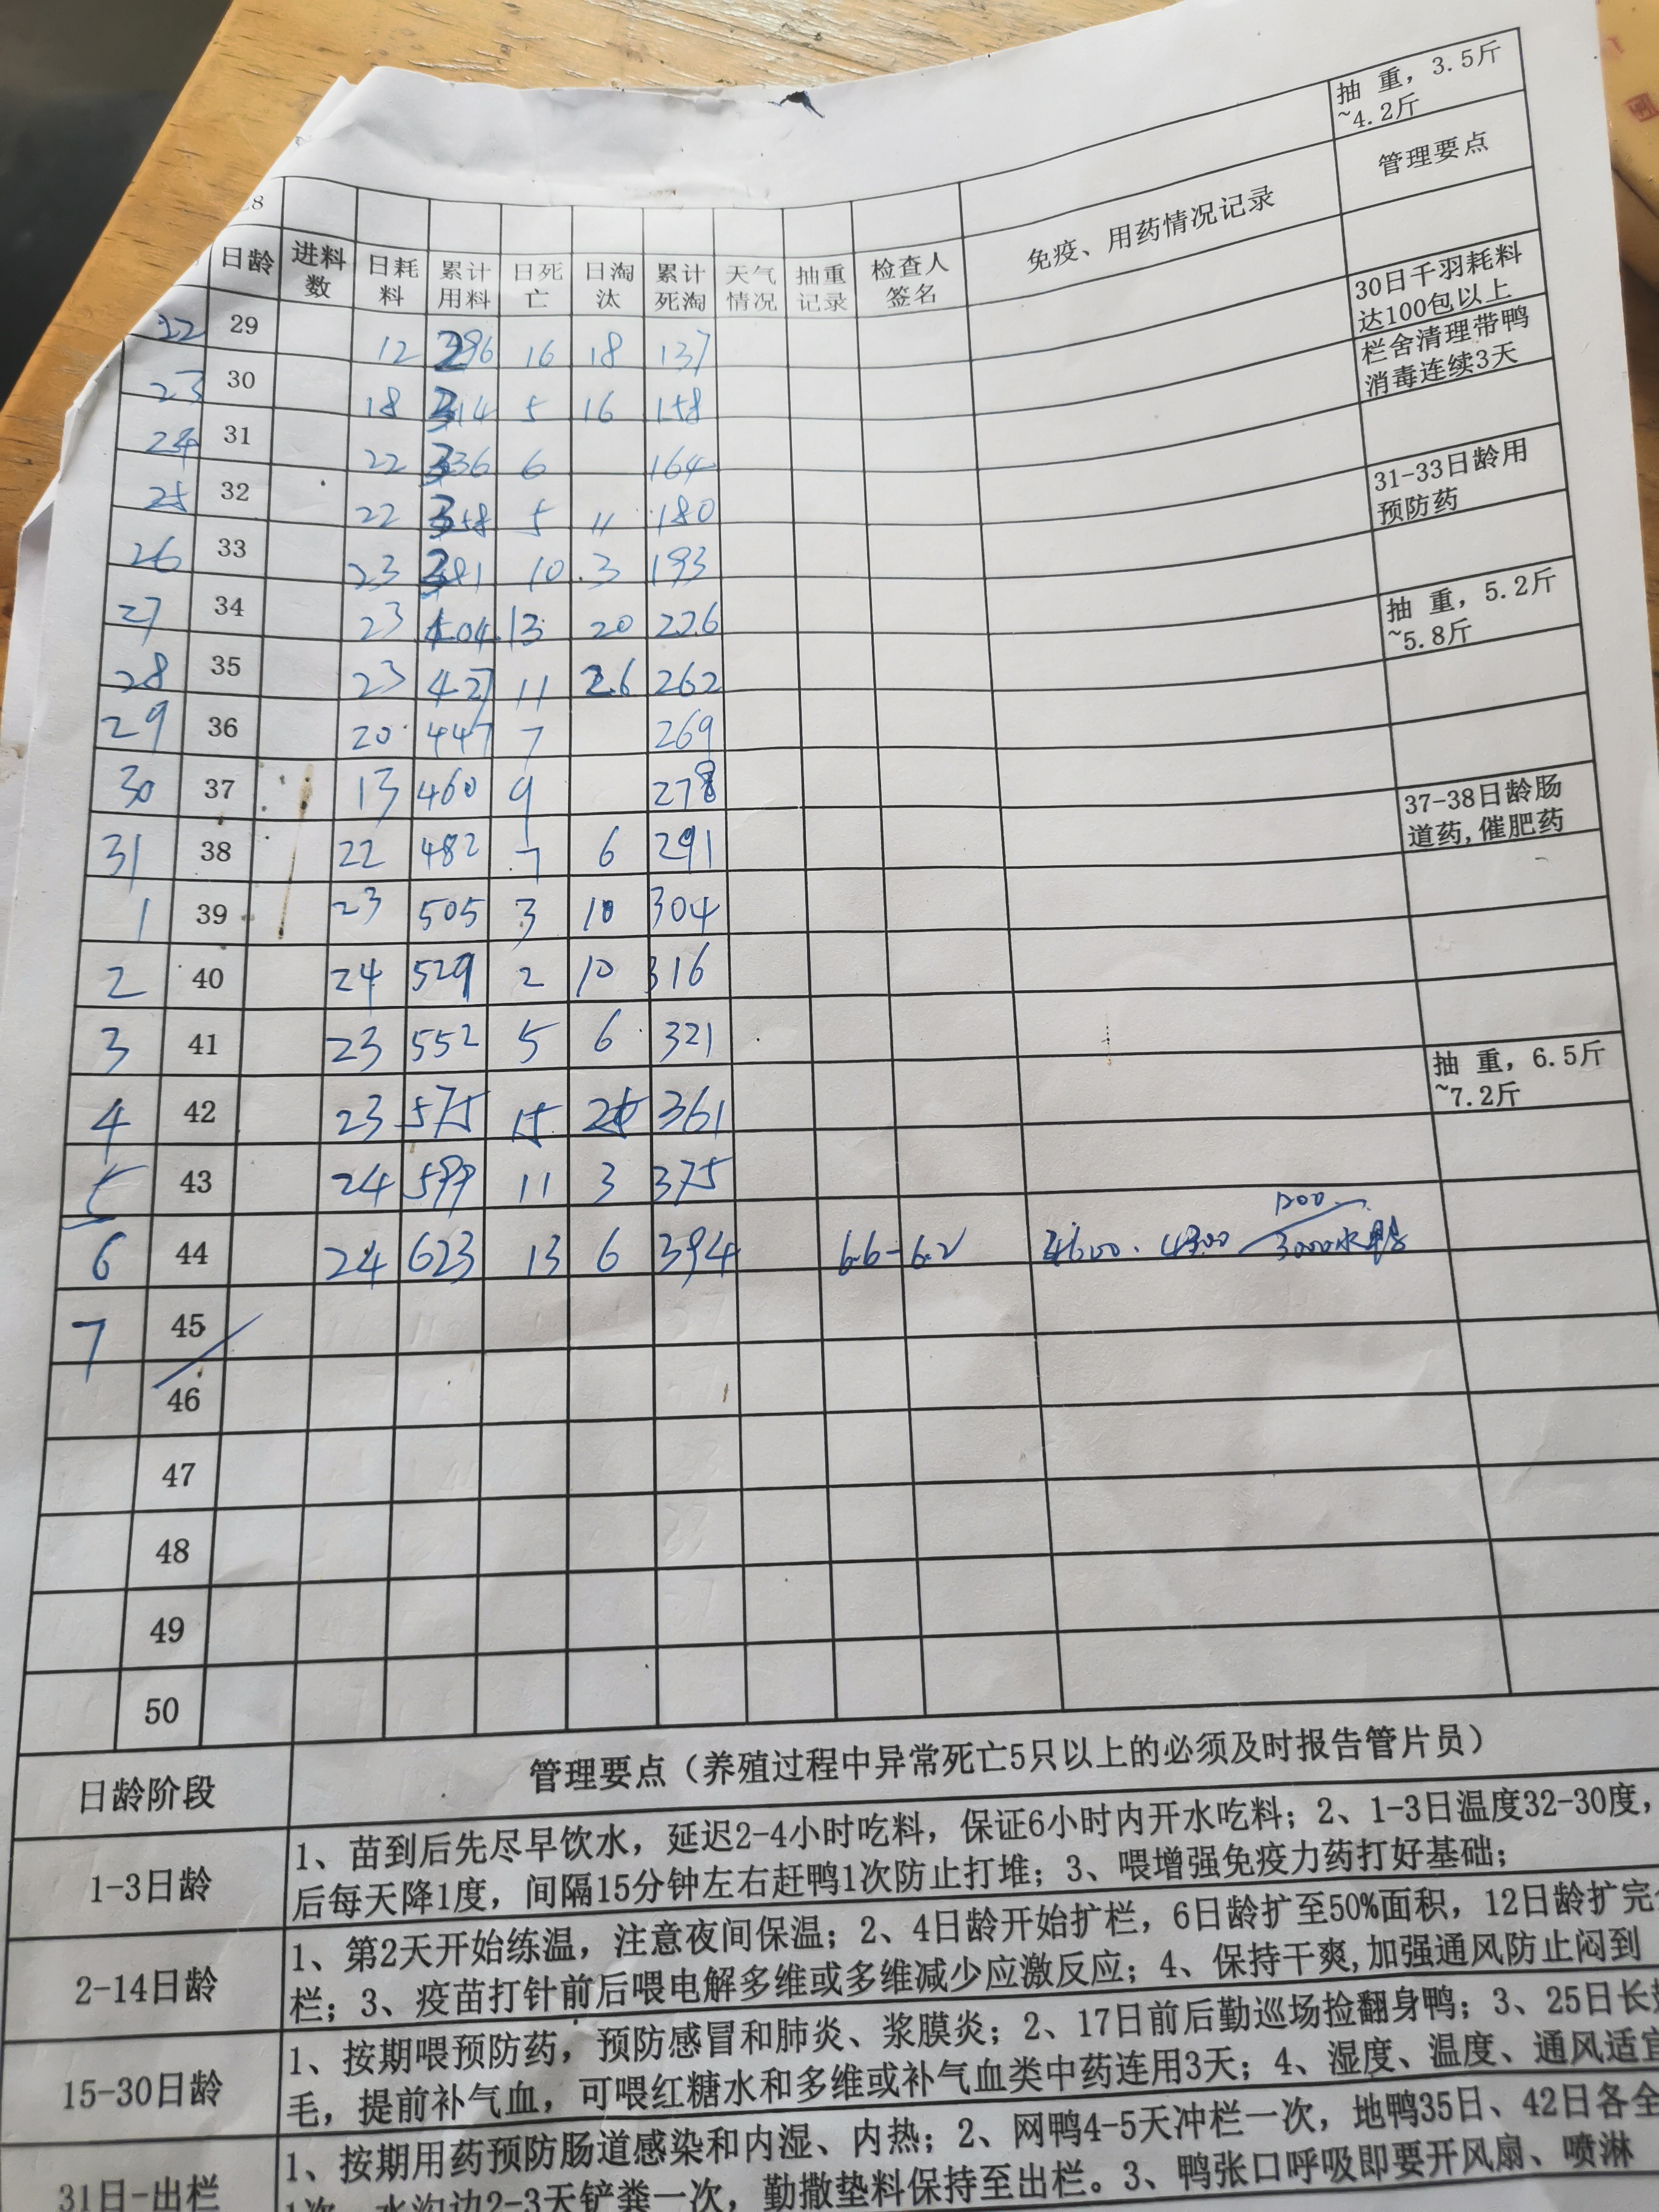 抽 重, 3.5斤
~4.2斤
28
日龄 进料数 日耗料 累计用料 日死亡 日淘汰 累计死淘 天气情况 抽重记录 检查人签名 免疫、用药情况记录 管理要点
22 29 12 296 16 18 137
30日千羽耗料
达100包以上
23 30 18 314 5 16 158
栏舍清理带鸭
消毒连续3天
24 31 22 336 6 164
25 32 22 358 5 11 180
31-33日龄用
预防药
26 33 23 381 10 3 193
27 34 23 404 13 20 226
28 35 23 427 11 26 262
抽 重, 5.2斤
~5.8斤
29 36 20 447 7 269
30 37 13 460 9 278
31 38 22 482 7 6 291
37-38日龄肠
道药,催肥药
1 39 23 505 3 10 304
2 40 24 529 2 10 316
3 41 23 552 5 6 321
4 42 23 575 15 25 361
抽 重, 6.5斤
~7.2斤
5 43 24 599 11 3 375
6 44 24 623 13 6 394 6.6-6.2 4600. 4300 1200 3000水鸭
7 45
46
47
48
49
50
日龄阶段 管理要点（养殖过程中异常死亡5只以上的必须及时报告管片员）
1-3日龄 1、苗到后先尽早饮水，延迟2-4小时吃料，保证6小时内开水吃料；2、1-3日温度32-30度，
后每天降1度，间隔15分钟左右赶鸭1次防止打堆；3、喂增强免疫力药打好基础；
2-14日龄 1、第2天开始练温，注意夜间保温；2、4日龄开始扩栏，6日龄扩至50%面积，12日龄扩完
栏；3、疫苗打针前后喂电解多维或多维减少应激反应；4、保持干爽,加强通风防止闷到
15-30日龄 1、按期喂预防药，预防感冒和肺炎、浆膜炎；2、17日前后勤巡场捡翻身鸭；3、25日长
毛，提前补气血，可喂红糖水和多维或补气血类中药连用3天；4、湿度、温度、通风适宜
31日-出栏 1、按期用药预防肠道感染和内湿、内热；2、网鸭4-5天冲栏一次，地鸭35日、42日各全
1次，水沟边2-3天铲粪一次，勤撒垫料保持至出栏。3、鸭张口呼吸即要开风扇、喷淋